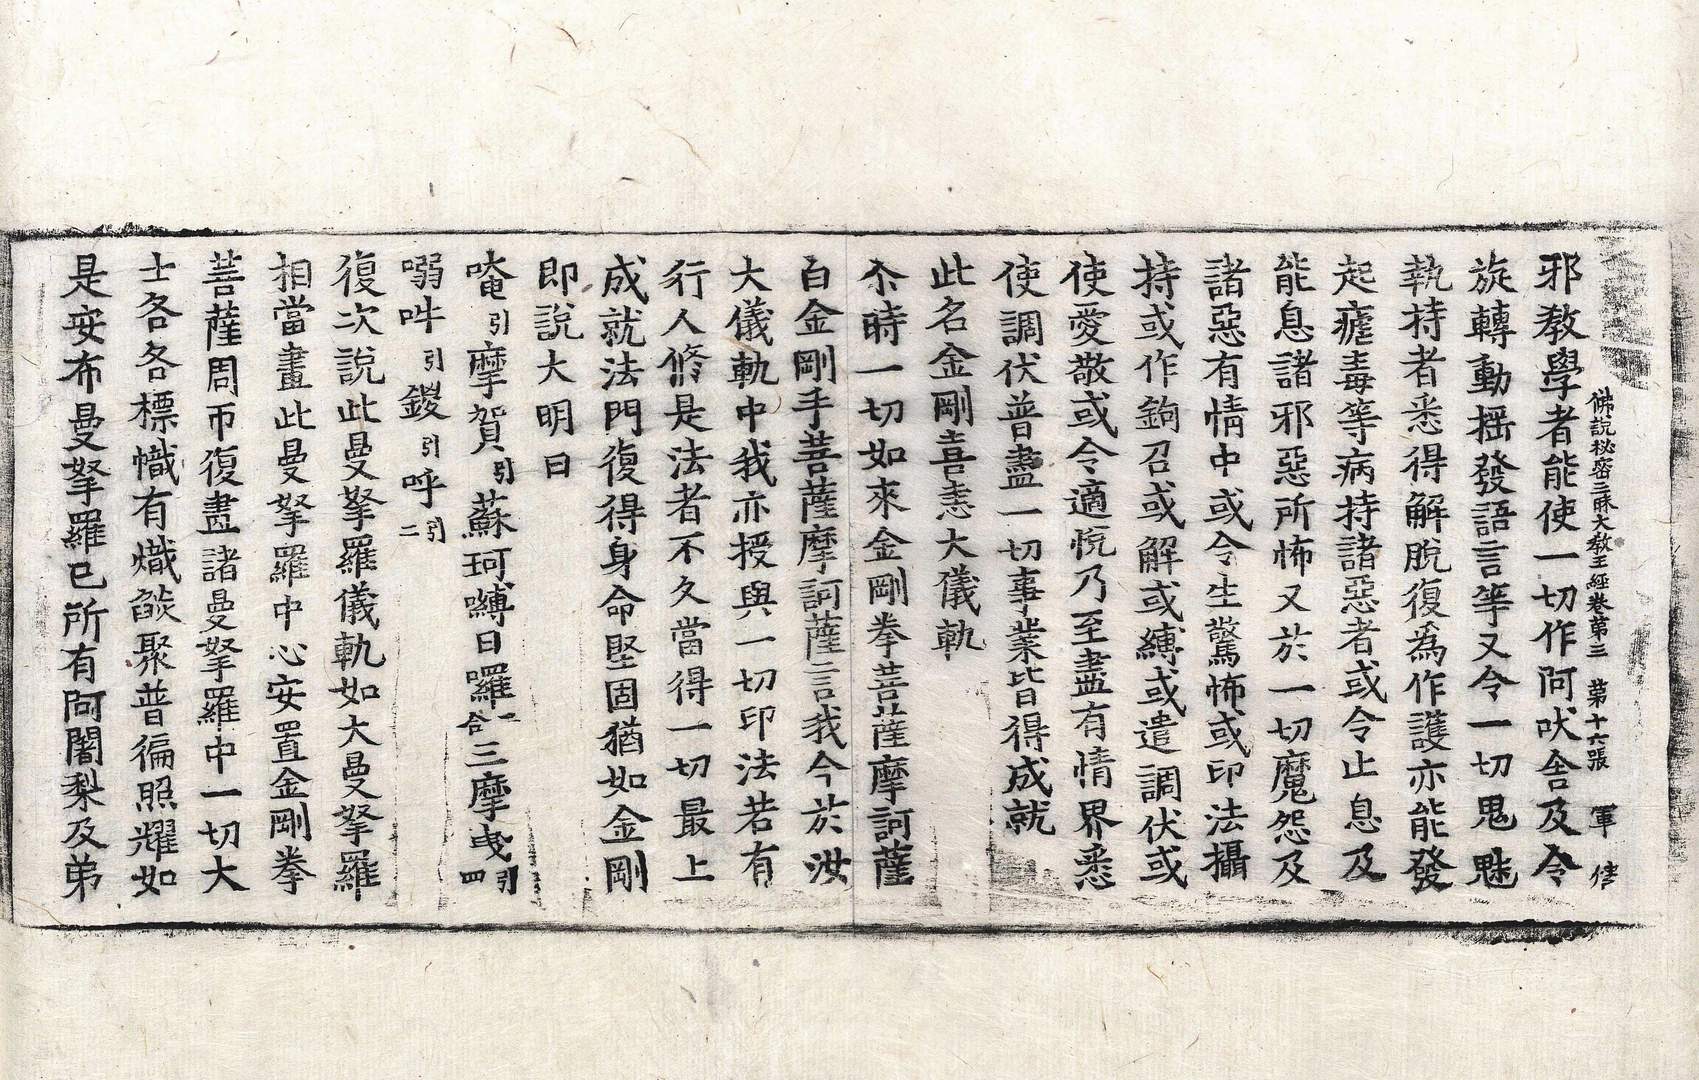 佛說秘密三昧大教王經卷第三　第十六張　軍　倍
邪教學者能使一切作阿吠舍及令
旋轉動揺發語言等又令一切鬼魅
執持者悉得解脫復為作護亦能發
起瘧毒等病持諸惡者或令止息及
能息諸邪惡所怖又於一切魔怨及
諸惡有情中或令生驚怖或印法攝
持或作鉤召或解或縛或遣調伏或
使愛敬或令適悅乃至盡有情界悉
使調伏普盡一切事業皆得成就
此名金剛喜恚大儀軌
尒時一切如來金剛拳菩薩摩訶薩
白金剛手菩薩摩訶薩言我今於汝
大儀軌中我亦授與一切印法若有
行人修是法者不久當得一切最上
成就法門復得身命堅固猶如金剛
即說大明曰
唵引摩賀引蘇珂嚩日囉二合三摩曳引四
嗢吽引鑁引呼引二
復次說此曼拏羅儀軌如大曼拏羅
相當畫此曼拏羅中心安置金剛拳
菩薩周帀復畫諸曼拏羅中一切大
士各各標幟有熾燄聚普徧照耀如
是安布曼拏羅已所有阿闍梨及弟